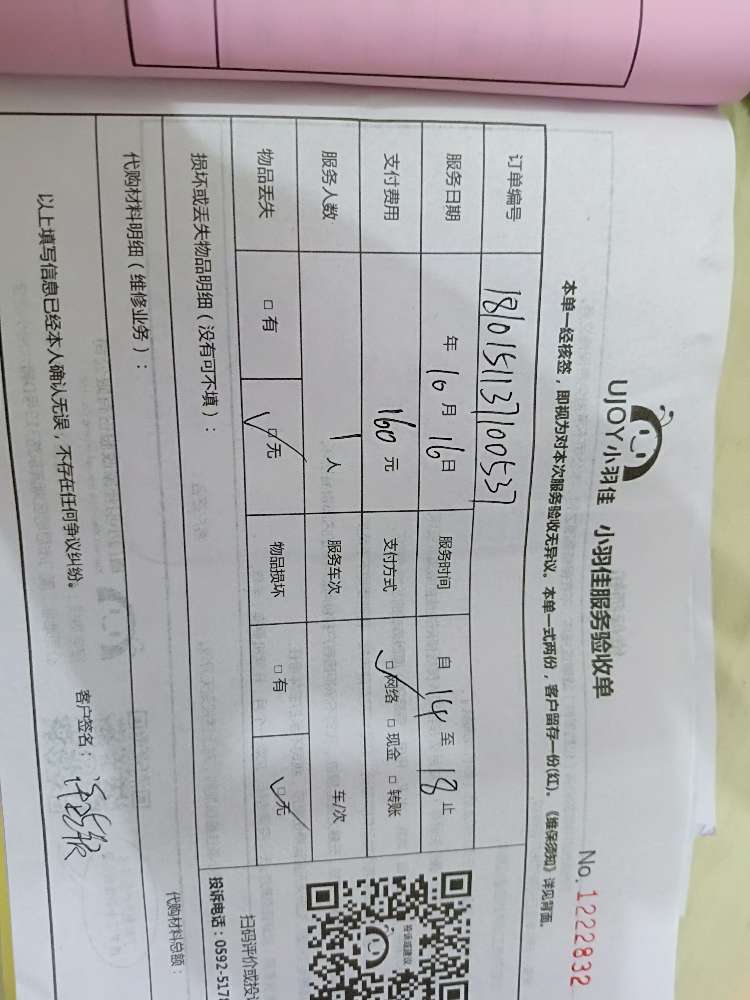 UJOY小羽佳 小羽佳服务验收单
No.1222832
本单一经核签，即视为对本次服务验收无异议。本单一式两份，客户留存一份(红)。《维保须知》详见背面。
订单编号 1810151137100537
服务日期 年10月16日 服务时间 自14至18止
支付费用 160元 支付方式 □网络 □现金 □转账
服务人数 1人 服务车次 车/次
物品丢失 □有 □无 物品损坏 □有 □无
损坏或丢失物品明细（没有可不填）：
代购材料明细（维修业务）：
代购材料总额：
以上填写信息已经本人确认无误，不存在任何争议纠纷。
客户签名：
投诉或建议
扫码评价或投
投诉电话：0592-517